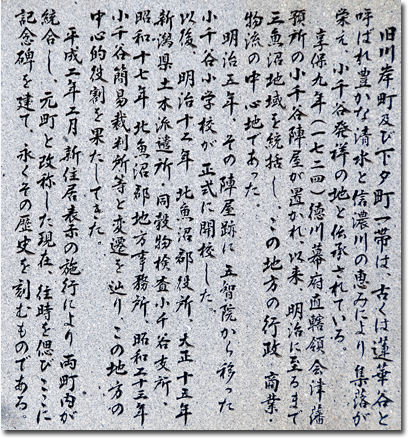 旧川岸町及び下夕町一帯は、古くは蓮華谷と
呼ばれ豊かな清水と信濃川の恵みにより集落が
栄え、小千谷発祥の地と伝承されている。
享保九年(一七二四)徳川幕府直轄領会津藩
預所の小千谷陣屋が置かれ、以来、明治に至るまで
三魚沼地域を統括し、この地方の行政、商業・
物流の中心地であった。
明治五年、その陣屋跡に五智院から移った
小千谷小学校が正式に開校した。
以後、明治十二年北魚沼郡役所、大正十五年
新潟県土木派遣所・同穀物検査小千谷支所、
昭和十七年北魚沼郡地方事務所、昭和二十三年
小千谷簡易裁判所等と変遷を辿り、この地方の
中心的役割を果たしてきた。
平成二年二月、新住居表示の施行により両町内が
統合し、元町と改称した現在、往時を偲びここに
記念碑を建て、永くその歴史を刻むものである。